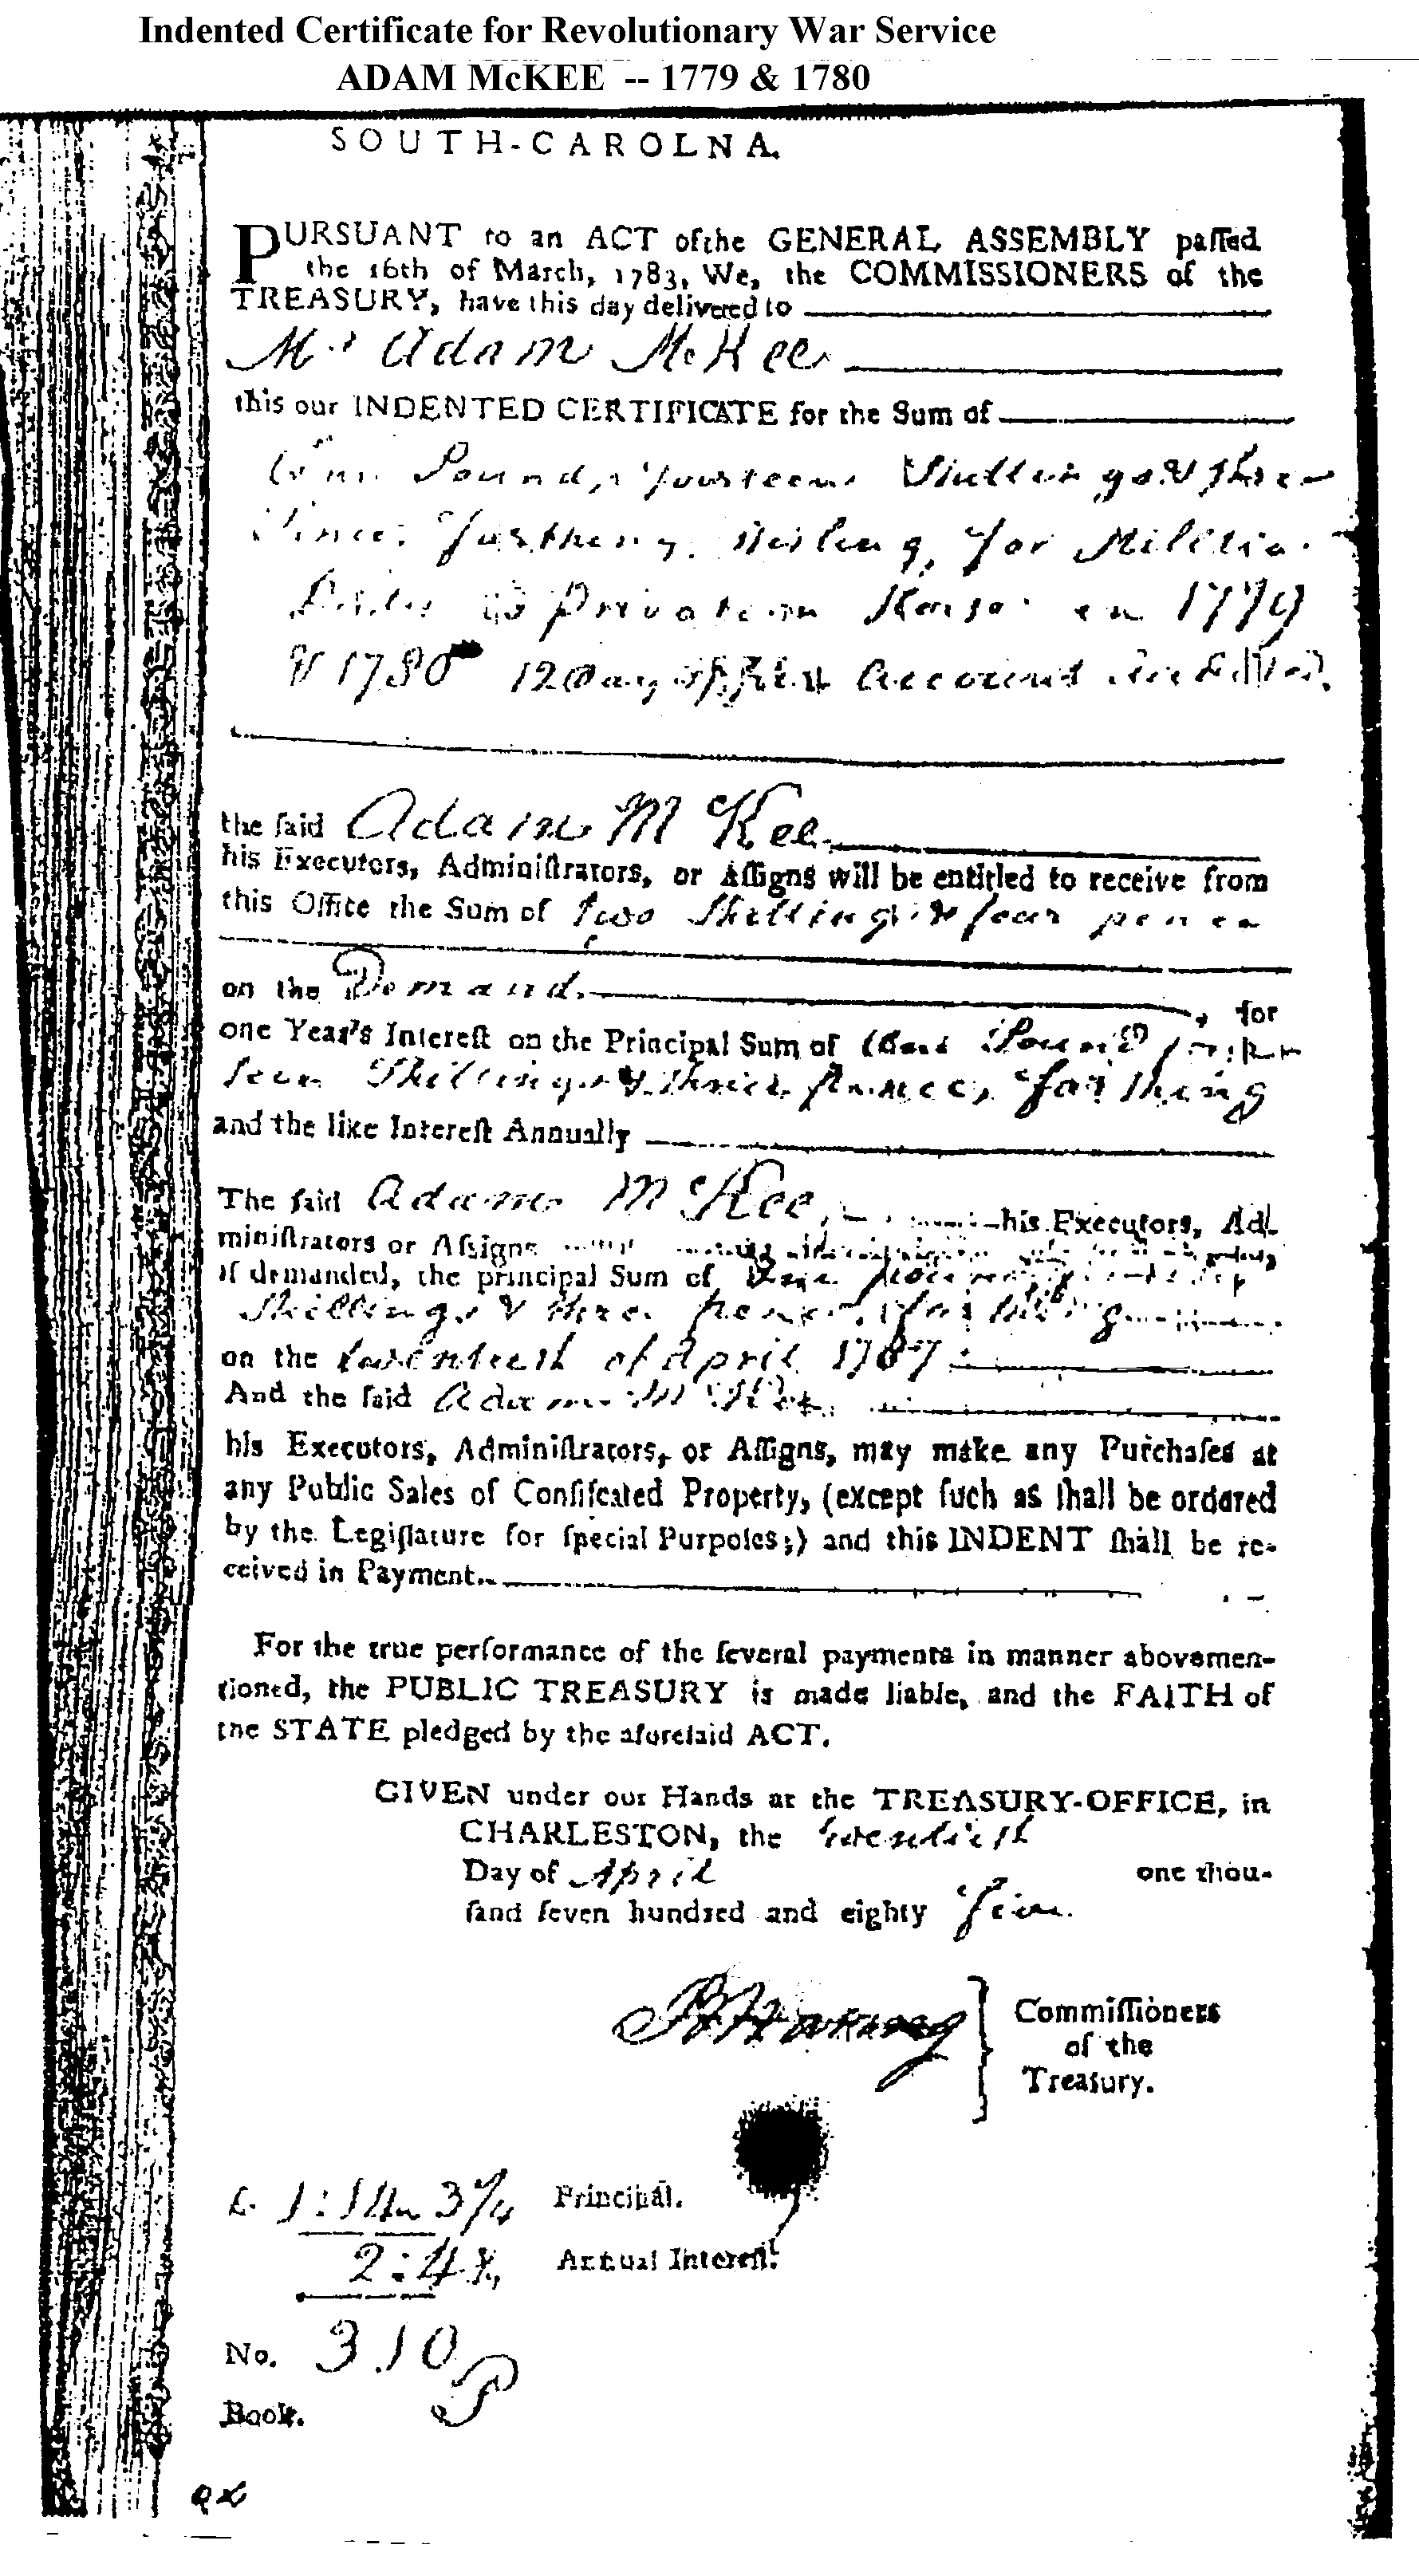 Indented Certificate for Revolutionary War Service
ADAM McKEE -- 1779 & 1780
SOUTH-CAROLNA.
PURSUANT to an ACT ofthe GENERAL ASSEMBLY paſſed
the 16th of March, 1783, We, the COMMISSIONERS of the
TREASURY, have this day delivered to
Mr Adam McKee
this our INDENTED CERTIFICATE for the Sum of
One Pound, fourteen Shillings & three
Pince, farthing, Sterling, for Millitia
Duty as Private on Horse in 1779
& 1780 120 days Account Audited.
the ſaid Adam McKee
his Executors, Adminiſtrators, or Aſſigns will be entitled to receive from
this Office the Sum of two Shillings & four pence
on the Demand. , for
one Year's Intereſt on the Principal Sum of One Pound four
teen Shillings & three pence, farthing
and the like Intereſt Annually
The ſaid Adam McKee his Executors, Ad-
miniſtrators or Aſsigns
if demanded, the principal Sum of One pound
Shillings & three pence, farthing
on the twentieth of April 1787
And the ſaid Adam McKee
his Executors, Adminiſtrators, or Aſſigns, may make any Purchaſes at
any Public Sales of Conſiſcated Property, (except ſuch as ſhall be ordered
by the Legiſlature for ſpecial Purpoſes;) and this INDENT ſhall be re-
ceived in Payment.
For the true performance of the ſeveral payments in manner abovemen-
tioned, the PUBLIC TREASURY is made liable, and the FAITH of
the STATE pledged by the aforeſaid ACT.
GIVEN under our Hands at the TREASURY-OFFICE, in
CHARLESTON, the twentieth
Day of April one thou-
ſand ſeven hundred and eighty five.
Commiſſioners
of the
Treaſury.
£ 1:14 3¼ Principal.
2:4 Annual Intereſt.
No. 310
Book. P